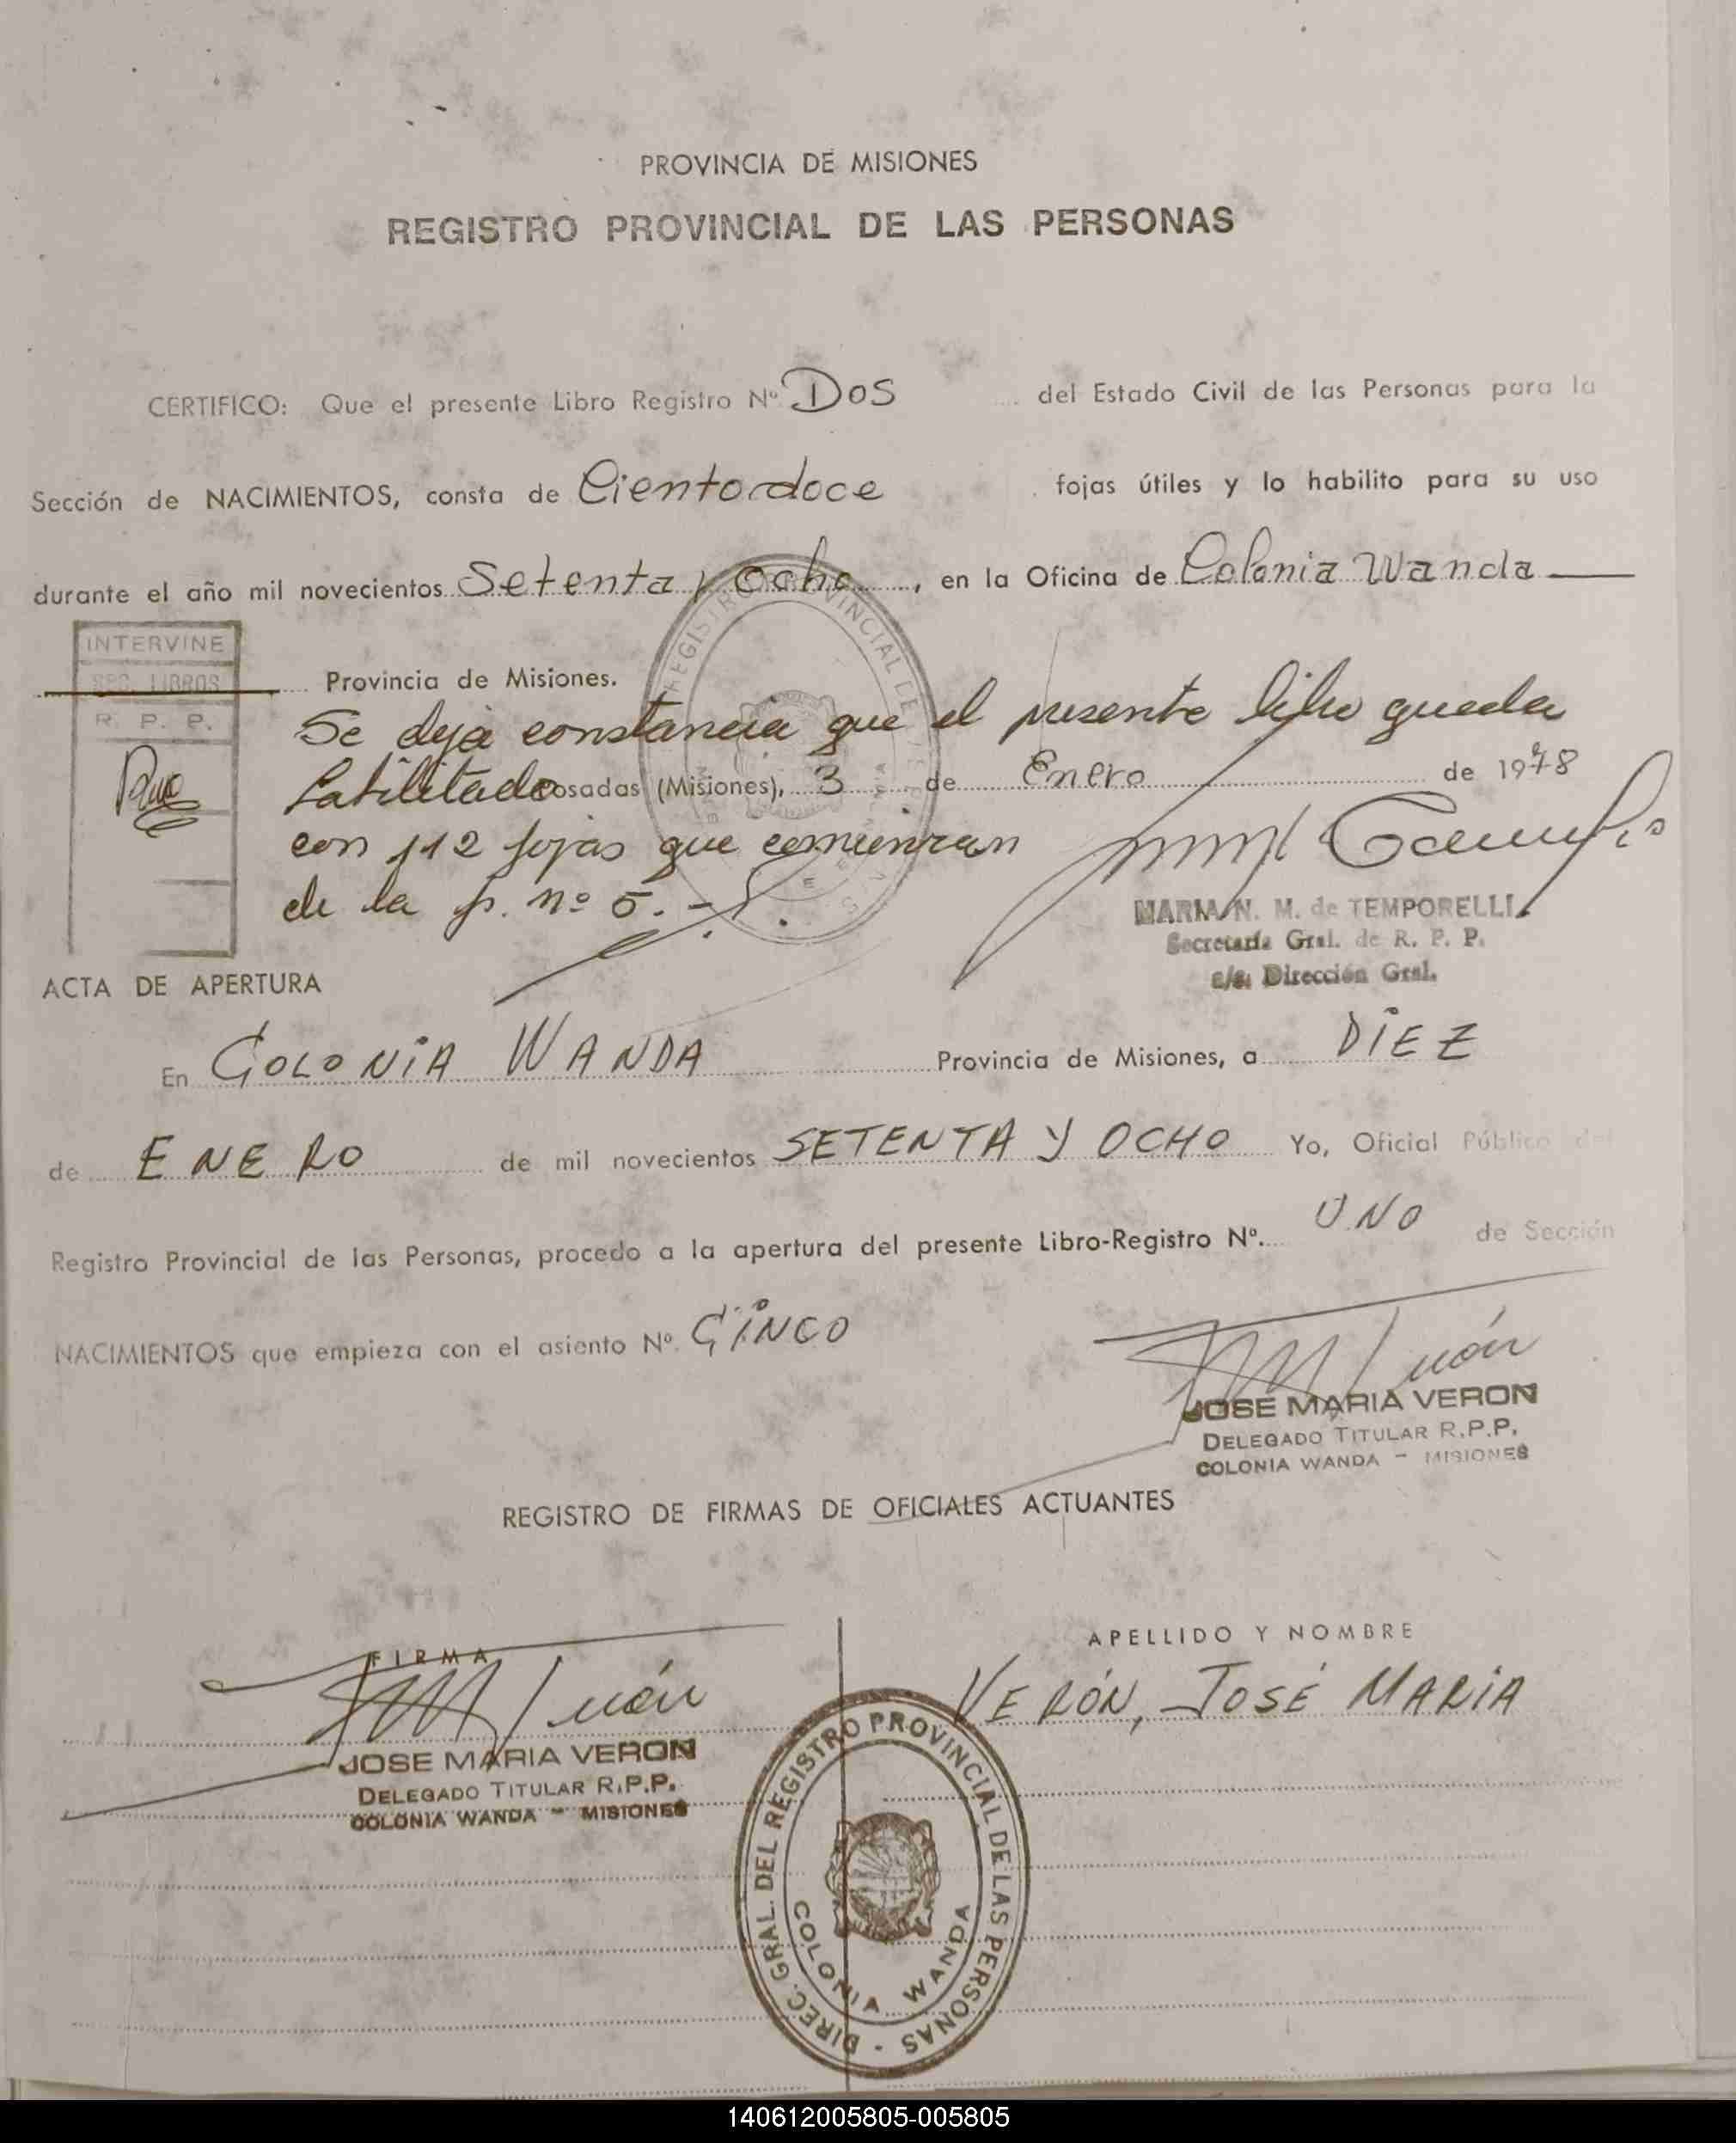 PROVINCIA DE MISIONES
REGISTRO PROVINCIAL DE LAS PERSONAS
CERTIFICO: Que el presente Libro Registro Nº Dos del Estado Civil de las Personas para la
Sección de NACIMIENTOS, consta de Ciento doce fojas útiles y lo habilito para su uso
durante el año mil novecientos Setenta y Ocho, en la Oficina de Colonia Wanda
INTERVINE
SEC. LIBROS
R. P. P.
Provincia de Misiones.
Se deja constancia que el presente libro queda
habilitado
Posadas (Misiones), 3 de Enero de 1978
con 112 fojas que comienzan
de la f. nº 5.-
REGISTRO PROVINCIAL DE
MARIA N. M. de TEMPORELLI
Secretaria Gral. de R. P. P.
a/c. Dirección Gral.
ACTA DE APERTURA
En COLONIA WANDA Provincia de Misiones, a DIEZ
de ENERO de mil novecientos SETENTA Y OCHO Yo, Oficial Público del
Registro Provincial de las Personas, procedo a la apertura del presente Libro-Registro Nº. UNO de Sección
NACIMIENTOS que empieza con el asiento Nº. CINCO
JOSE MARIA VERON
DELEGADO TITULAR R.P.P.
COLONIA WANDA - MISIONES
REGISTRO DE FIRMAS DE OFICIALES ACTUANTES
FIRMA
APELLIDO Y NOMBRE
VERÓN, JOSÉ MARIA
JOSE MARIA VERON
DELEGADO TITULAR R.P.P.
COLONIA WANDA - MISIONES
DIREC. GRAL. DEL REGISTRO PROVINCIAL DE LAS PERSONAS -
COLONIA WANDA
140612005805-005805